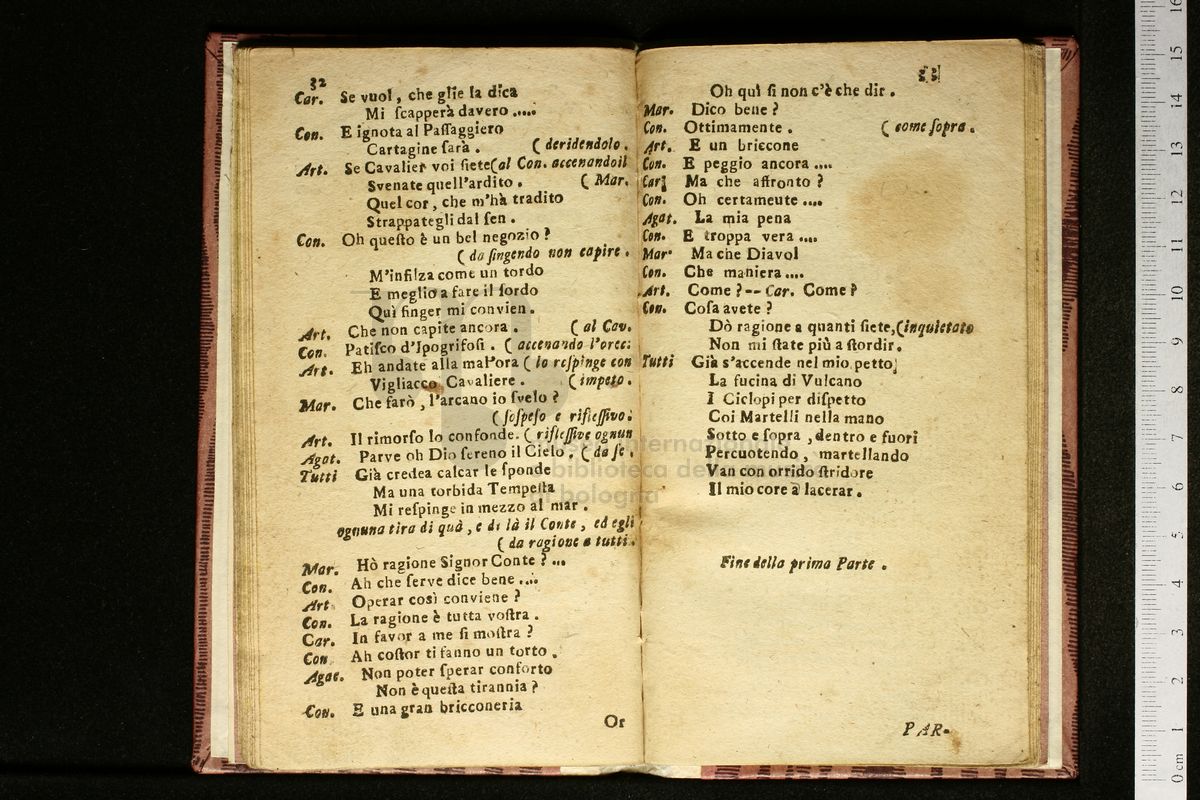 32
Car. Se vuol, che glie la dica
Mi ſcapperà davero ....
Con. E ignota al Paſſaggiero
Cartagine ſarà . ( deridendolo .
Art. Se Cavalier voi ſiete(al Con. accenandoil
Svenate quell'ardito . ( Mar.
Quel cor, che m'hà tradito
Strappategli dal ſen .
Con. Oh queſto è un bel negozio ?
( da ſingendo non capire .
M'infilza come un tordo
E meglio a fare il ſordo
Quì finger mi convien .
Art. Che non capite ancora . ( al Cav.
Con. Patiſco d'Ipogrifoſi . ( accenando l'orec:
Art. Eh andate alla mal'ora ( lo reſpinge con
Vigliacco Cavaliere . ( impeto .
Mar. Che farò , l'arcano io ſvelo ?
( ſoſpeſo e rifleſſivo :
Art. Il rimorſo lo confonde. ( rifleſſive ognun
Agat. Parve oh Dio ſereno il Cielo . ( da ſe .
Tutti Già credea calcar le ſponde
Ma una torbida Tempeſta
Mi reſpinge in mezzo al mar .
ognuna tira di quà , e di là il Conte , ed egli
( da ragione a tutti .
Mar. Hò ragione Signor Conte ? ...
Con. Ah che ſerve dice bene ....
Art. Operar così conviene ?
Con. La ragione è tutta voſtra .
Car. In favor a me ſi moſtra ?
Con. Ah coſtor ti fanno un torto .
Agat. Non poter ſperar conforto
Non è queſta tirannia ?
Con. E una gran bricconeria
Or
33
Oh quì ſi non c'è che dir .
Mar. Dico bene ?
Con. Ottimamente . ( come ſopra .
Art. E un briccone
Con. E peggio ancora ....
Car. Ma che affronto ?
Con. Oh certameute ....
Agat. La mia pena
Con. E troppa vera ....
Mar. Ma che Diavol
Con. Che maniera ....
Art. Come ? -- Car. Come ?
Con. Coſa avete ?
Dò ragione a quanti ſiete,(inquietato
Non mi ſtate più a ſtordir.
Tutti Già s'accende nel mio petto
La fucina di Vulcano
I Ciclopi per diſpetto
Coi Martelli nella mano
Sotto e ſopra , dentro e fuori
Percuotendo , martellando
Van con orrido ſtridore
Il mio core a lacerar .
Fine della prima Parte .
PAR-
museo internazionale
e biblioteca della musica
di bologna
0 cm 1 2 3 4 5 6 7 8 9 10 11 12 13 14 15 16